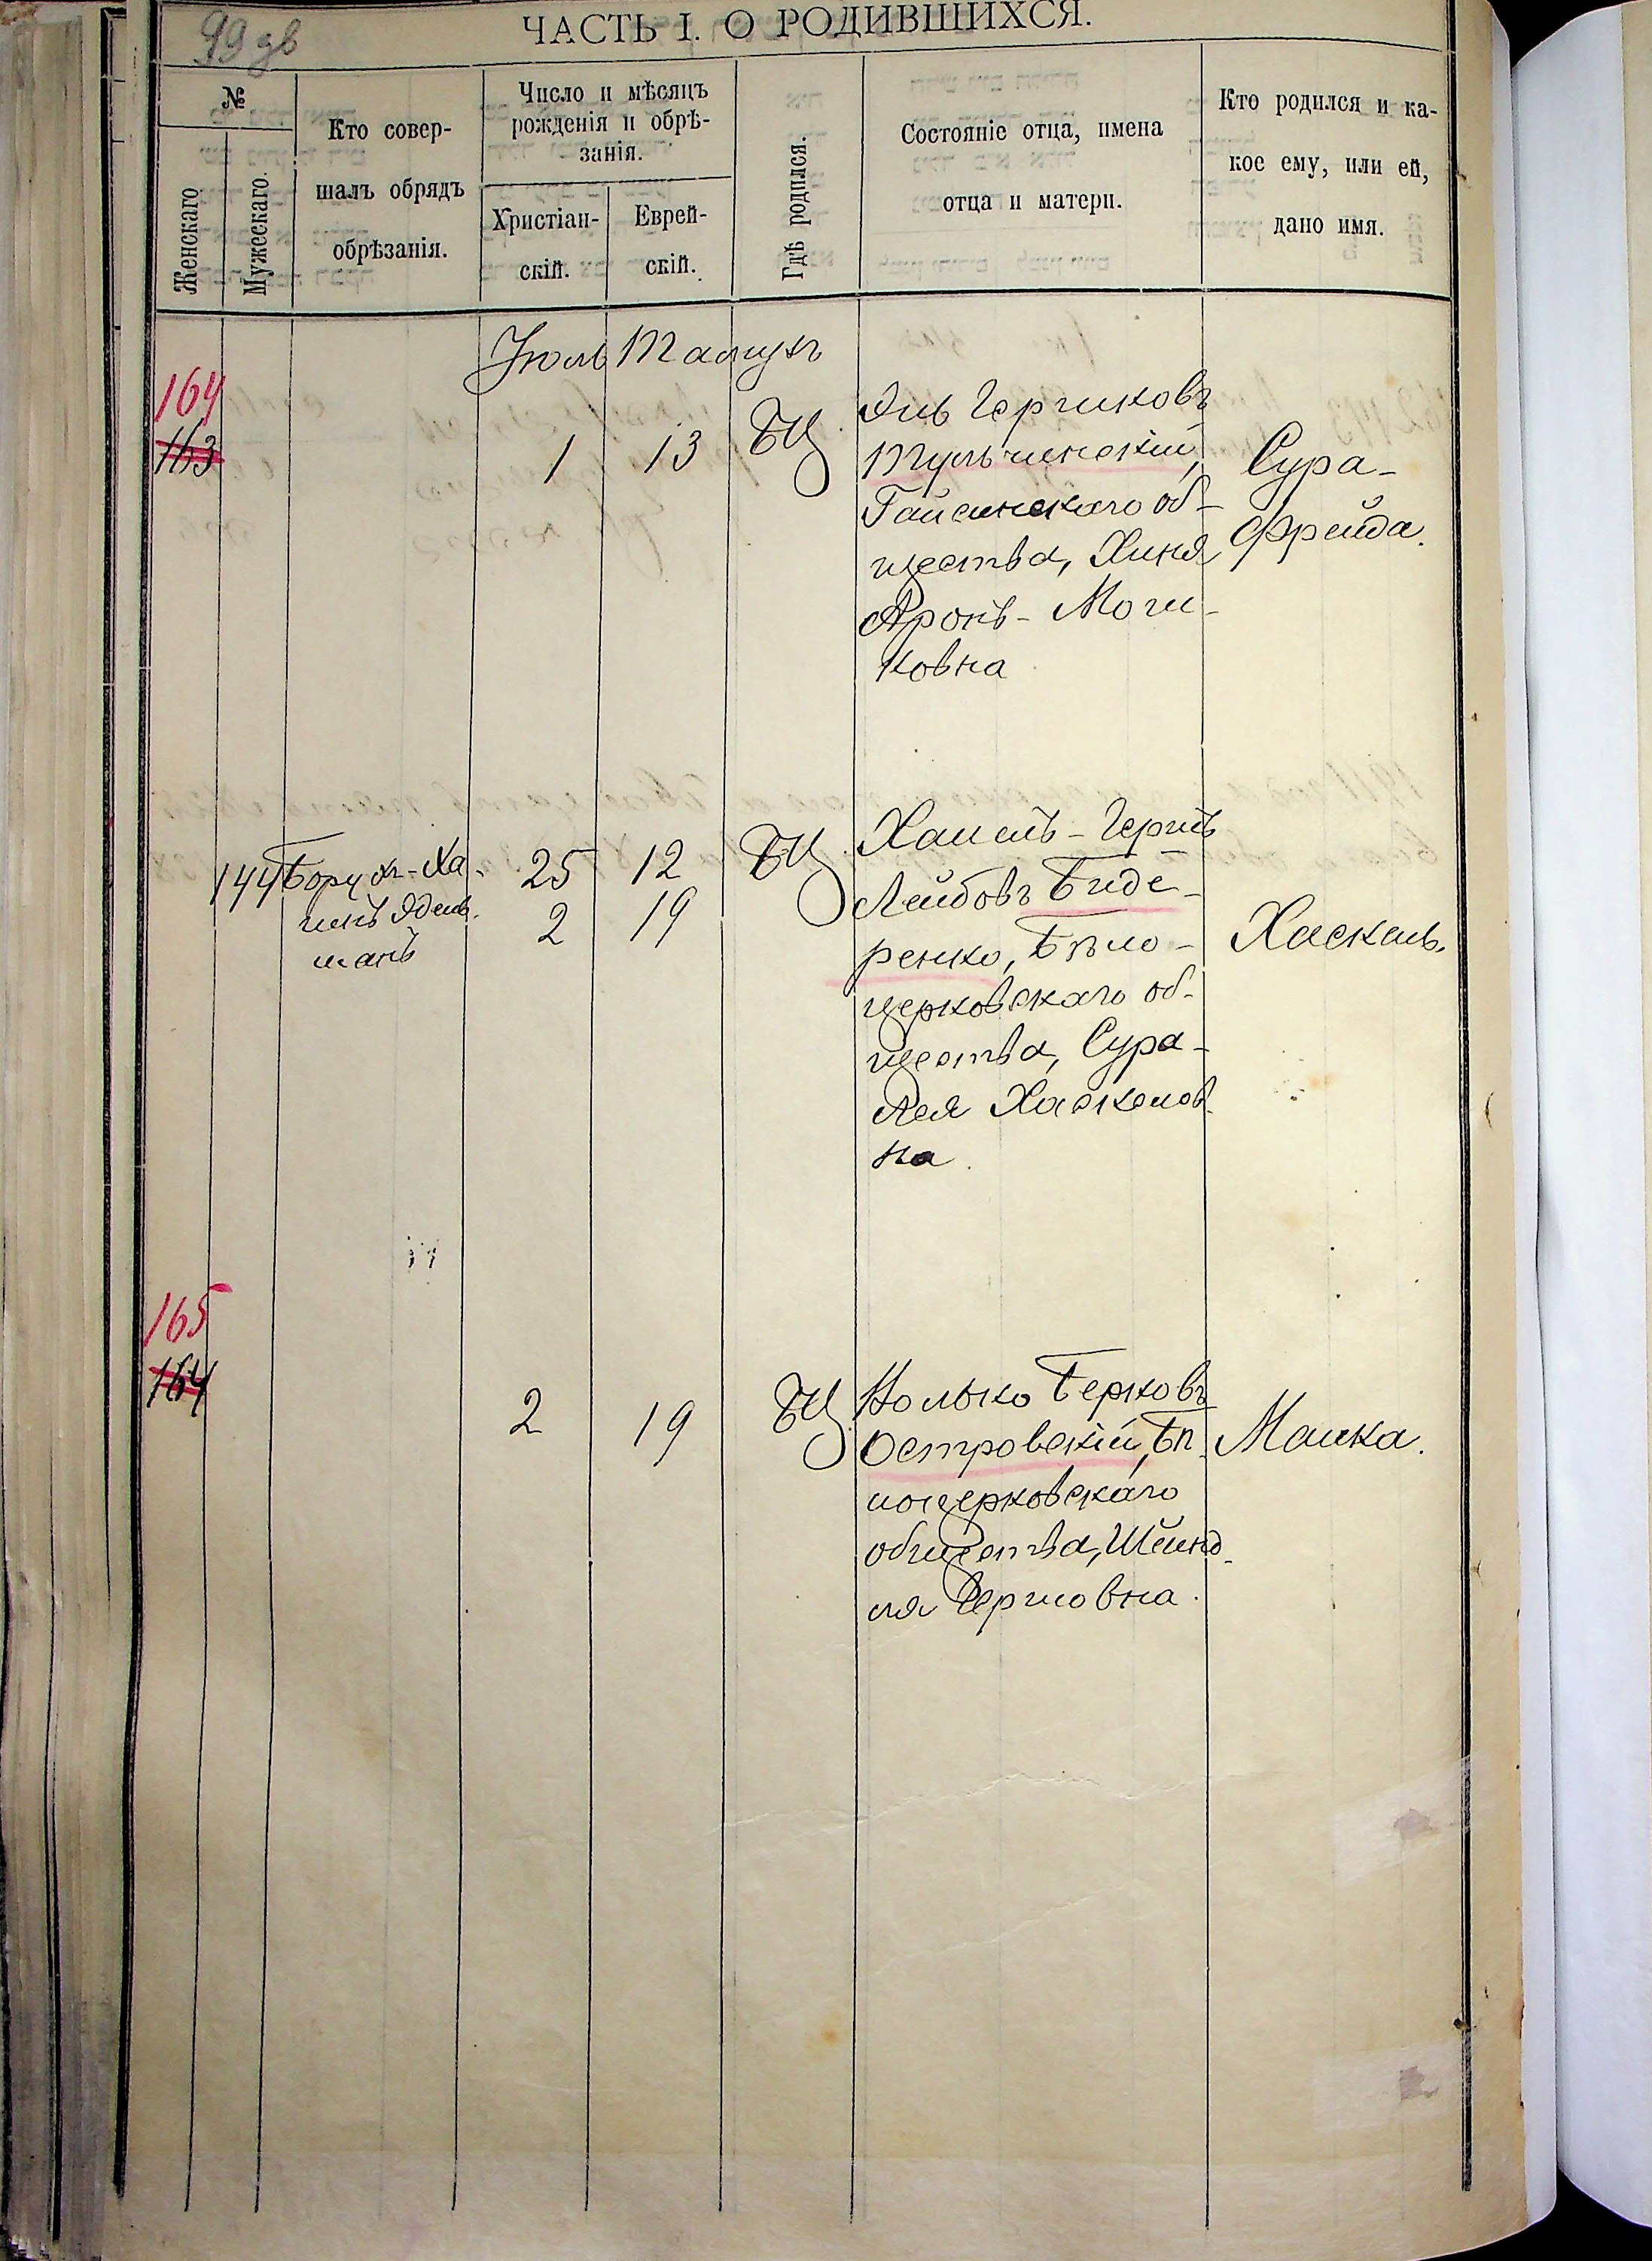 99 дв
ЧАСТЬ I. О РОДИВШИХСЯ.
№
Женскаго
Мужескаго.
Кто совер-
шалъ обрядъ
обрѣзанія.
Число и мѣсяцъ
рожденія и обрѣ-
занія.
Христіан-
скій.
Еврей-
скій.
Гдѣ родился.
Состояніе отца, имена
отца и матери.
Кто родился и ка-
кое ему, или ей,
дано имя.
Іюль Тамузъ
164
163
1
13
БЦ.
Гершковъ
Тульчинскій,
Гайсинскаго об-
щества, Хиня
Аронъ-Мош-
ковна
Сура-
Фрейда.
144
Борухъ-Ха
имъ Эдель
манъ
25
12
2
19
БЦ.
Хаимъ-Гершъ
Лейбовъ Биде-
ренко, Бѣло-
церковскаго об-
щества, Сура-
Лея Хаскелов
на.
Хаскель.
165
164
2
19
БЦ.
Волько Берковъ
Островскій, Бѣ
лоцерковскаго
общества, Шейнд
ля Гершовна.
Малка.